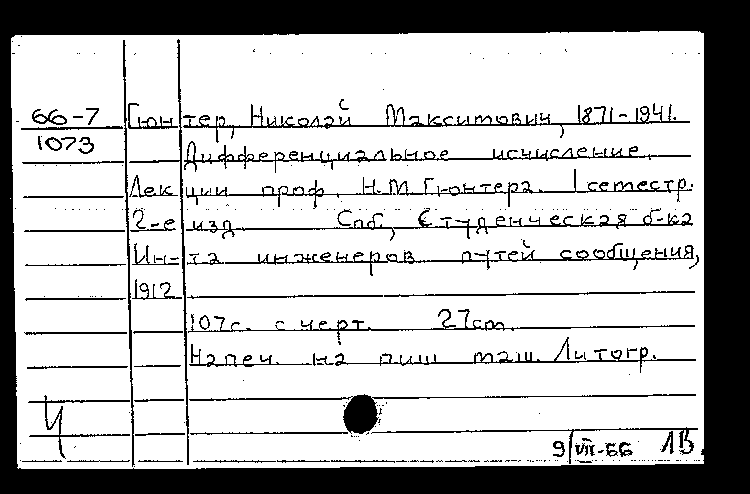 66-7 Гюнтер, Николай Максимович, 1871-1941.
1073
Дифференциальное исчисление.
Лекции проф. Н.М.Гюнтера. I семестр.
2-е изд. Спб., Студенческая б-ка
Ин-та инженеров путей сообщения,
1912
107с. с черт. 27см.
Напеч. на пиш. маш. Литогр.
Ч
9/VII-66 ЛВ.